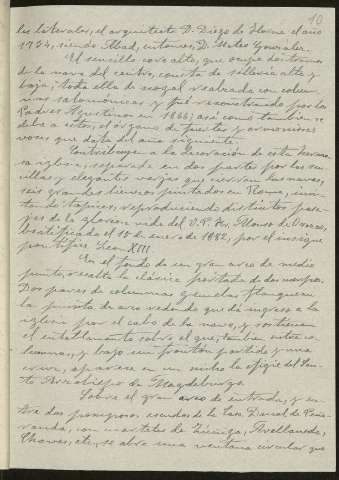 10
les laterales, el arquitecto D. Diego de Horna el año
1734, siendo Abad, entonces, D. Mateo González.
El sencillo coro alto, que ocupa dos tramos
de la nave del centro, consta de sillería alta y
baja; toda ella de nogal realzada con colum-
nas salomónicas y fué reconstruido por los
Padres Agustinos en 1866; así como también se
debe a éstos, el órgano de fuertes y armoniosas
voces que data del año siguiente.
Contribuyen a la decoración de esta hermo-
sa iglesia, separada en dos partes por las sen-
cillas y elegantes verjas que cierran las naves,
seis grandes lienzos pintados en Roma, imi-
tando tapices, reproduciendo distintos pasa-
jes de la gloriosa vida del V. P. Fr. Alonso de Orozco,
beatificado el 15 de enero de 1882, por el insigne
pontífice León XIII
En el fondo de un gran arco de medio
punto, resalta la clásica portada de dos cuerpos.
Dos pares de columnas gemelas flanquean
la puerta de arco redondo que da ingreso a la
iglesia por el cabo de la nave, y sostienen
el entablamento sobre el que, también entre co-
lumnas, y bajo un frontón partido y una
cruz, aparece en un nicho la efigie del San-
to Arzobispo de Magdeburgo.
Sobre el gran arco de entrada, y en-
tre dos pomposos escudos de la Casa Ducal de Peña-
randa, con cuarteles de Zúñiga, Avellaneda,
Chaves, etc, se abre una ventana circular que